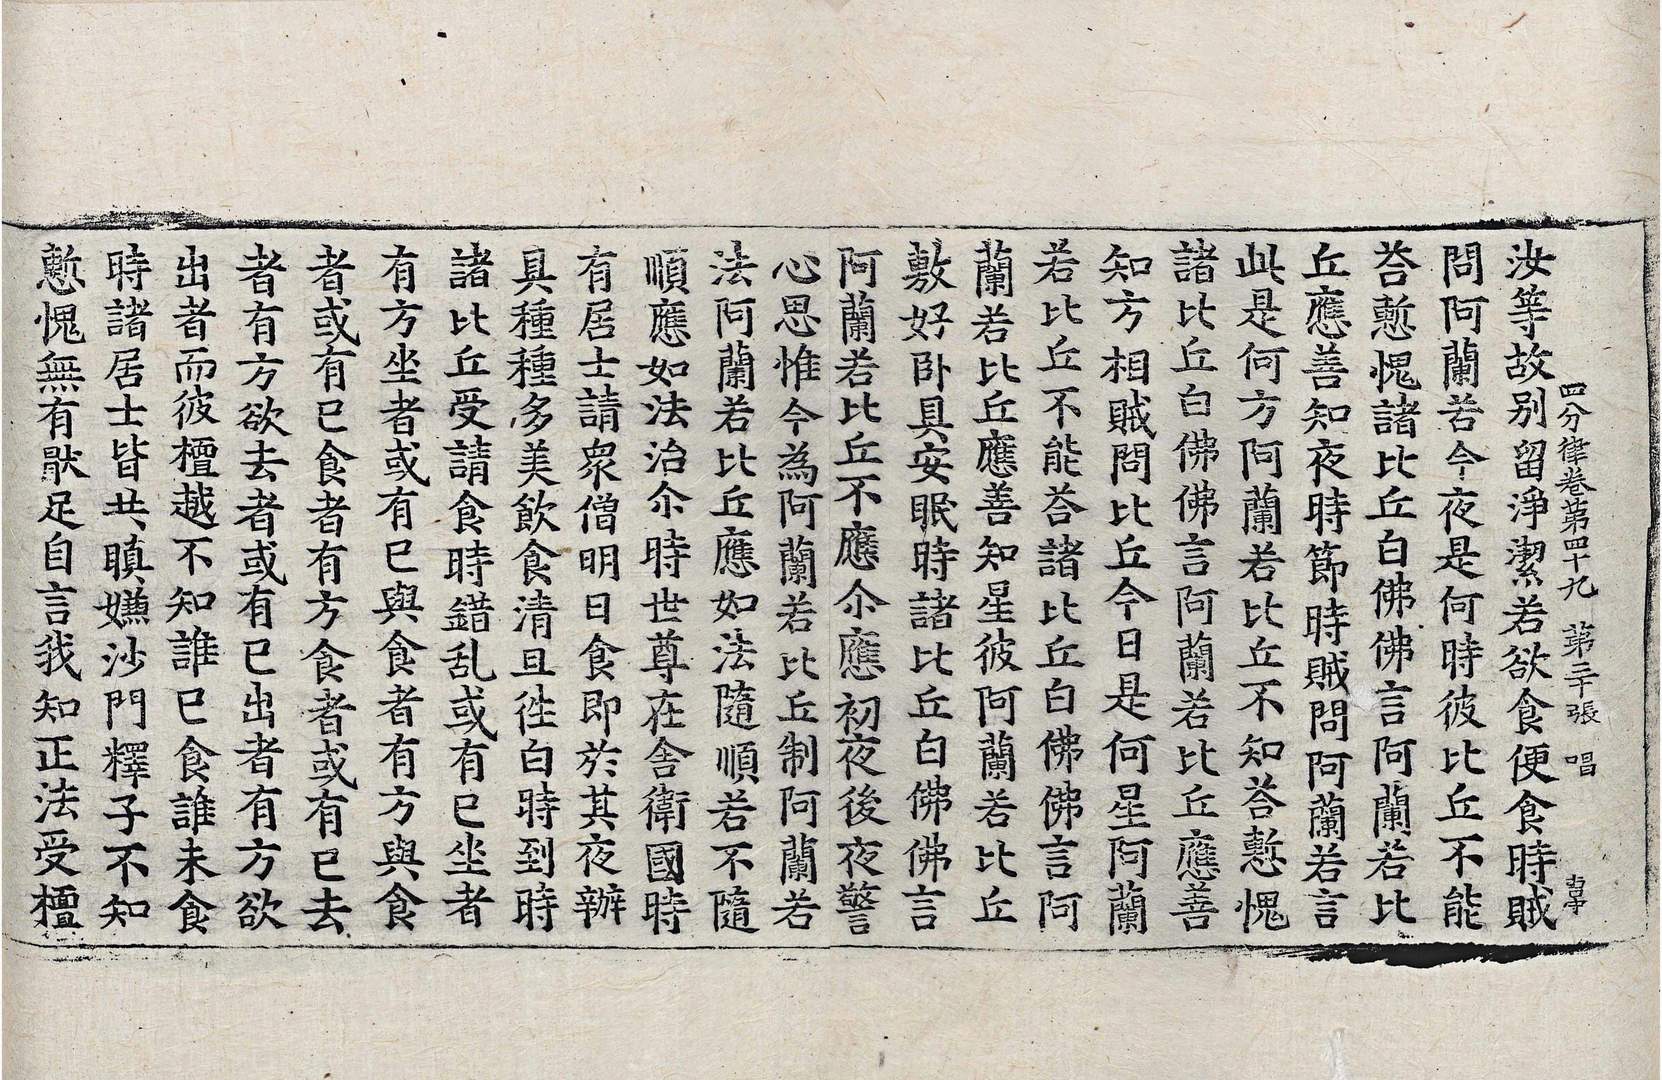 四分律卷第四十九 第二十張 唱
汝等故別留淨潔若欲食便食時賊
問阿蘭若今夜是何時彼比丘不能
荅慙愧諸比丘白佛佛言阿蘭若比
丘應善知夜時節時賊問阿蘭若言
此是何方阿蘭若比丘不知荅慙愧
諸比丘白佛佛言阿蘭若比丘應善
知方相賊問比丘今日是何星阿蘭
若比丘不能荅諸比丘白佛佛言阿
蘭若比丘應善知星彼阿蘭若比丘
敷好卧具安眠時諸比丘白佛佛言
阿蘭若比丘不應尒應初夜後夜警
心思惟今為阿蘭若比丘制阿蘭若
法阿蘭若比丘應如法隨順若不隨
順應如法治尒時世尊在舍衛國時
有居士請衆僧明日食即於其夜辦
具種種多美飲食清旦徃白時到時
諸比丘受請食時錯乱或有已坐者
有方坐者或有已與食者有方與食
者或有已食者有方食者或有已去
者有方欲去者或有已出者有方欲
出者而彼檀越不知誰已食誰未食
時諸居士皆共瞋嫌沙門釋子不知
慙愧無有猒足自言我知正法受檀